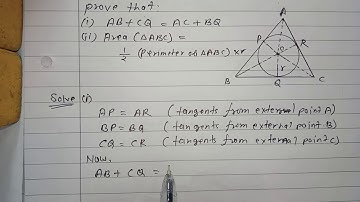 prove that:
(i) AB + CQ = AC + BQ
(ii) Area (△ABC) =
1/2 (Perimeter of △ABC) × r
A
P
R
O
r
B
Q
C
Solve (i)
AP = AR (tangents from external point A)
BP = BQ (tangents from external point B)
CQ = CR (tangents from external point C)
Now,
AB + CQ =